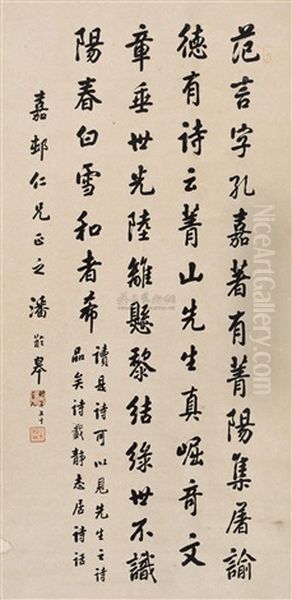 范言字孔嘉著有菁陽集屠諭
德有詩云菁山先生真崛奇文
章垂世光陸離懸黎結綠世不識
陽春白雪和者希
讀其詩可以見先生之詩
品矣詩載靜志居詩話
嘉邨仁兄正之 潘齡皋
NiceArtGallery.com